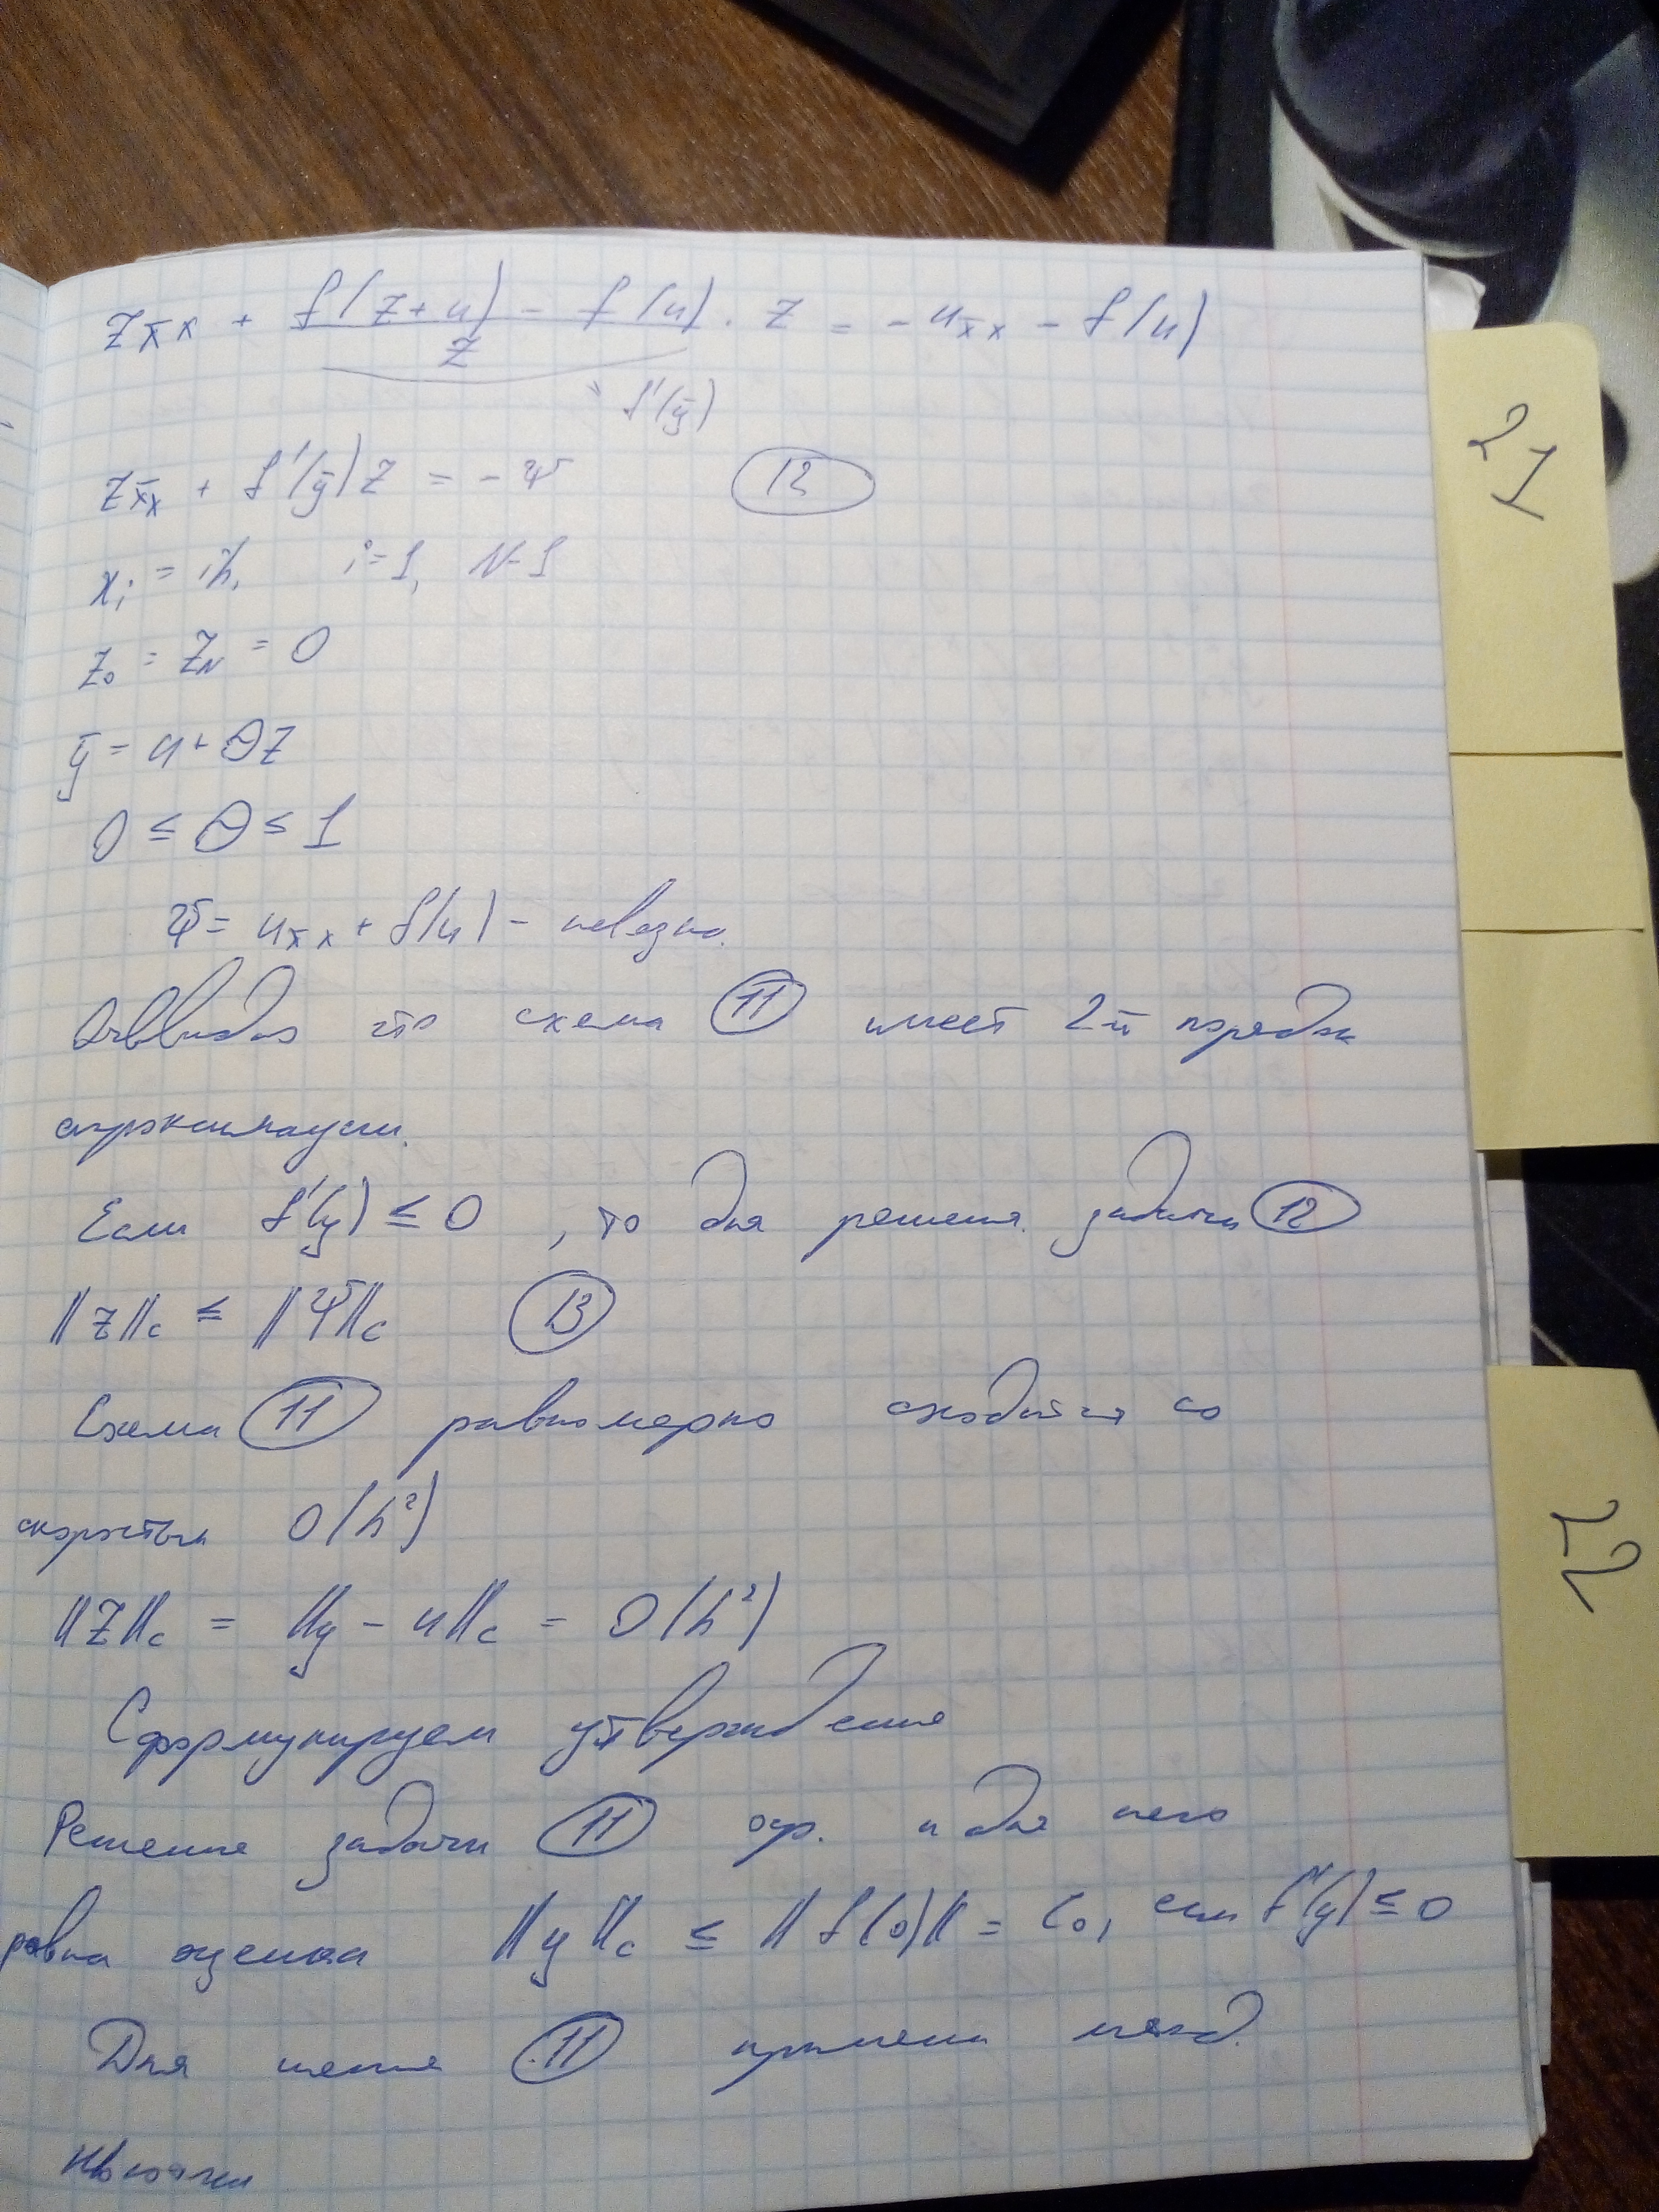 z_{x̄x} + (f(z+u) - f(u))/z · z = -u_{x̄x} - f(u)
= f'(ȳ)
z_{x̄x} + f'(ȳ)z = -ψ (12)
x_i = ih, i=1, N-1
z_0 = z_N = 0
ȳ = u + θz
0 ≤ θ ≤ 1
ψ = u_{x̄x} + f(u) - невязка.
что схема (11) имеет 2-й порядок
аппроксимации.
Если f'(y) ≤ 0, то для решения задачи (12)
||z||_c ≤ ||ψ||_c (13)
Схема (11) равномерно сходится со
скоростью O(h²)
||z||_c = ||y - u||_c = O(h²)
Сформулируем утверждение
Решение задачи (11) огр. и для него
оценка ||y||_c ≤ ||f(0)|| = C_0, если f'(y) ≤ 0
Для (11) метод
Ньютона
21
22